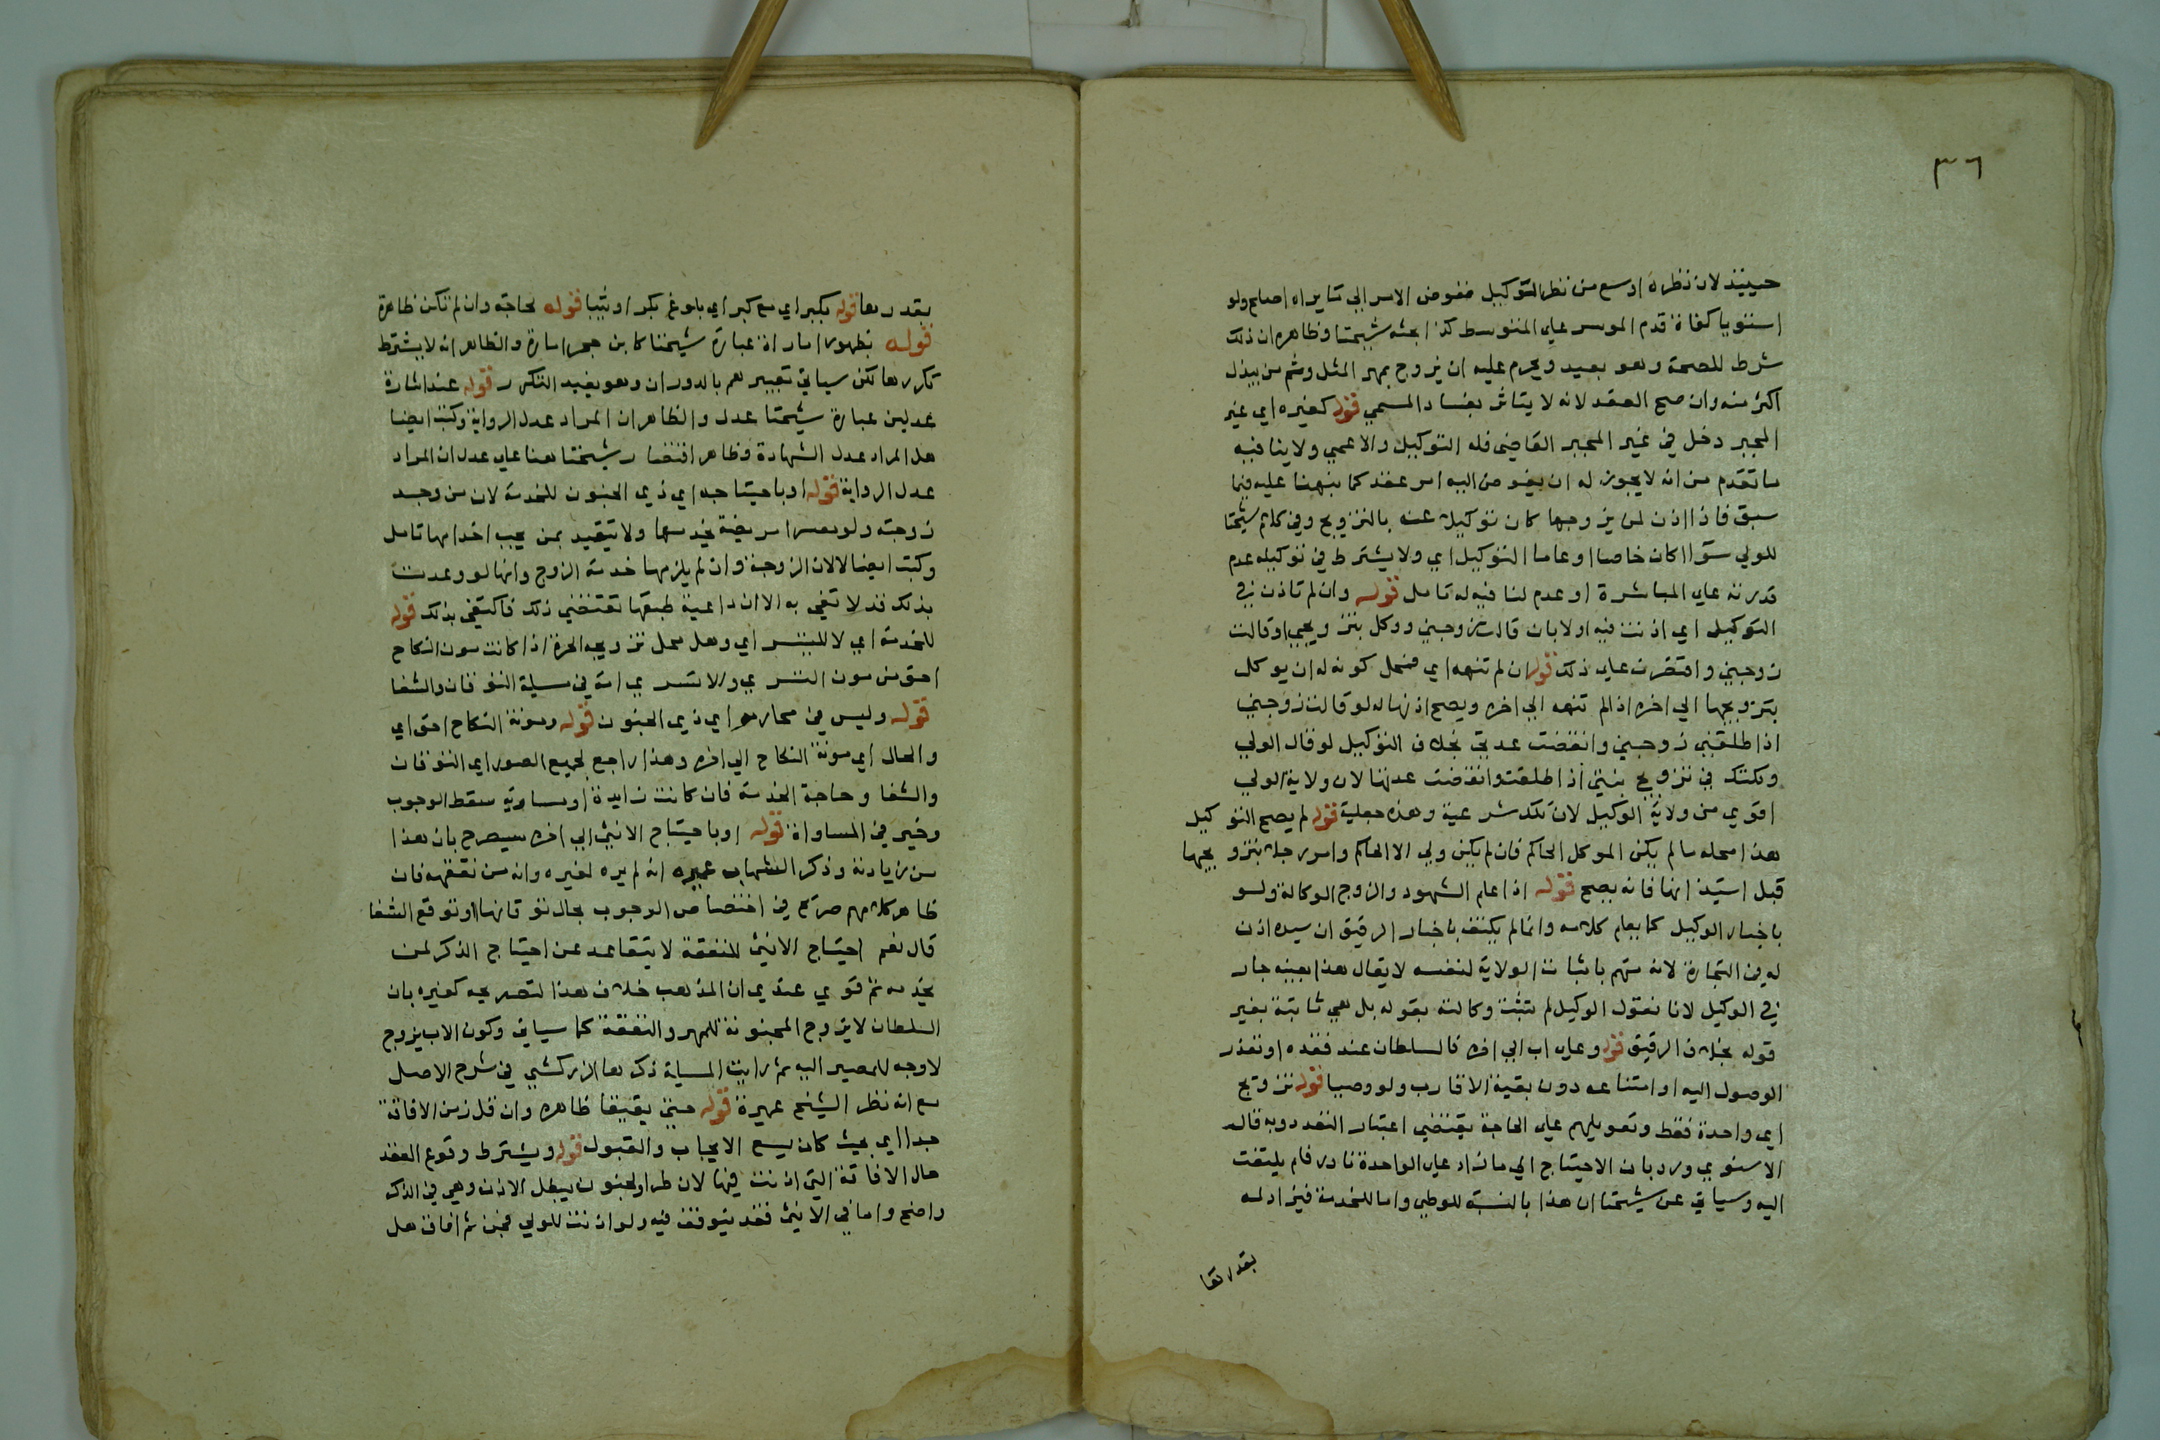 ٣٦
حينيذ لان نظره اوسع من نظر التوكيل ففوض الامر الي ما يراه اصلح ولو
استويا كفاة قدم الموسر علي المتوسط كذا بحثه شيختا وظاهره ان ذلك
شرط للصحة وهو بعيد ويحرم عليه ان يزوج بمهر المثل وثم من يبذل
اكثر منه وان صح العقد لانه لا يتاثر بفساد المسمي قوله كغيره اي غير
المجبر دخل في غير المجبر القاضي فله التوكيل والاعمي ولا ينافيه
ما تقدم من انه لا يجوز له ان يفوض اليه امر عقد كما نبهنا عليه فيما
سبق فاذا اذن لمن يزوجها كان توكيلا عنه بالتزويج وفي كلام شيختا
للولي سوا اكان خاصا او عاما التوكيل اي ولا يشترط في توكيله عدم
قدرته علي المباشرة او عدم لنا فيه له تامل قوله وان لم تاذن في
التوكيل اي اذنت فيه اولا بان قالت زوجني ووكل بتزويجي او قالت
زوجني واقتصرت علي ذلك قوله ان لم تنهه اي فمحل كونه له ان يوكل
بتزويجها الي اخره اذا لم تنهه الي اخره ويصح اذنها له لو قالت زوجني
اذا طلقني زوجني وانقضت عدتي بخلاف التوكيل لو قال الولي
وكلتك في تزويج بنتي اذا طلقت وانقضت عدتها لان ولاية الولي
اقوي من ولاية الوكيل لان تلك شرعية وهذه جعلية قوله لم يصح التوكيل
هذا محله ما لم يكن الموكل الحاكم فان لم يكن ولي الا الحاكم وامر رجلا بتزويجها
قبل استيذانها فانه يصح قوله اذا علم الشهود والزوج الوكالة ولو
باخبار الوكيل كما يعلم كلامه وانما لم يكتف باخبار الرقيق ان سيده اذن
له في التجارة لانه متهم باثبات الولاية لنفسه لا يقال هذا بعينه جار
في الوكيل لانا نقول الوكيل لم تثبت وكالته بقوله بل هي ثابتة بغير
قوله بخلاف الرقيق قوله وعلي اب الي اخره فالسلطان عند فقده او تعذر
الوصول اليه او امتناعه دون بقية الاقارب ولو وصيا قوله تزويج
اي واحدة فقط وتعويلهم علي الحاجة يقتضي اعتبار التعدد وبه قال
الاسنوي ورد بان الاحتياج الي ما زاد علي الواحدة نادر فلم يلتفت
اليه وسياتي عن شيختا ان هذا بالنسبة للوطي واما للخدمة فيزاد له
بقدرها
بقدرها قوله بكبر اي مع كبر اي بلوغ بكرا وثيبا قوله لحاجة وان لم تكن ظاهرة
قوله بظهور امارات عبارة شيختا كابن حجر امارة والظاهر انه لا يشترط
تكررها لكن سياتي تعبيرهم بالدوران وهو يفيد التكرر قوله عند اشارة
عدلين عبارة شيختا عدل والظاهر ان المراد عدل الرواية وكتب ايضا
هل المراد عدل الشهادة وظاهر اقتصار شيختا هنا علي عدل ان المراد
عدل الرواية قوله او باحتياجه اي ذي الجنون للخدمة لان من وجد
زوجته ولو معسرا مريضة يخدمها ولا تتقيد بمن يجب اخدامها تامل
وكتب ايضا لا لان الزوجة وان لم يلزمها خدمة الزوج وانها لو وعدت
بذلك قد لا تفي به الا ان داعية طبعها تقتضي ذلك فاكتفي بذلك قوله
للخدمة اي لا للتسر اي وهل محل تزويجه الحرة اذا كانت مون النكاح
اخف من مون التسري والا تسري امة في مسيلة التوقان والشفا
قوله وليس في محارمه اي ذي الجنون قوله ومونة النكاح اخف اي
والحال اي مونة النكاح الي اخره وهذا راجع لجميع الصور اي التوقان
والشفا وحاجة الخدمة فان كانت زايدة او مساوية سقط الوجوب
وخير في المساواة قوله او باحتياج الانثي الي اخره سيصرح بان هذا
من زيادته وذكر الشهاب عميره انه لم يره لغيره وانه من تفقهه فان
ظاهر كلامهم صريح في اختصاص الوجوب بحال توقانها او توقع الشفا
قال نعم احتياج الانثي للنفقة لا يتقاعد عن احتياج الذكر لمن
يخدمه ثم قوي عندي ان المذهب خلاف هذا لتصريحه كغيره بان
السلطان لا يزوج المجنونة للمهر والنفقة كما سياتي وكون الاب يزوج
لا وجه للمصير اليه ثم رايت المسيلة ذكرها الزركشي في شرح الاصل
مع انه نظر الشيخ عميرة قوله حتي يفيقا ظاهره وان قل زمن الافاقة
جدا اي بحيث كان يسع الايجاب والقبول قوله ويشترط وقوع العقد
حال الافاقة التي اذنت فيها لان طرا الجنون يبطل الاذن وهي في الذكر
واضح واما في الانثي فقد يتوقف فيه ولو اذنت للولي فجن ثم افاق هل